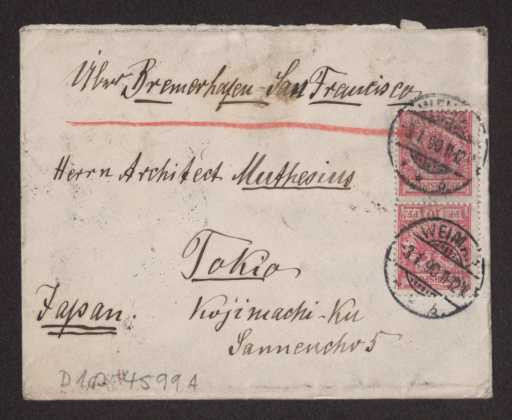 Über Bremerhafen - San Francisco
Herrn Architect Muthesius
Tokio
Japan. Kojimachi-Ku
Sannencho 5
WEIM
3.1.90
10 PF
WEIM
3.1.90
4599A